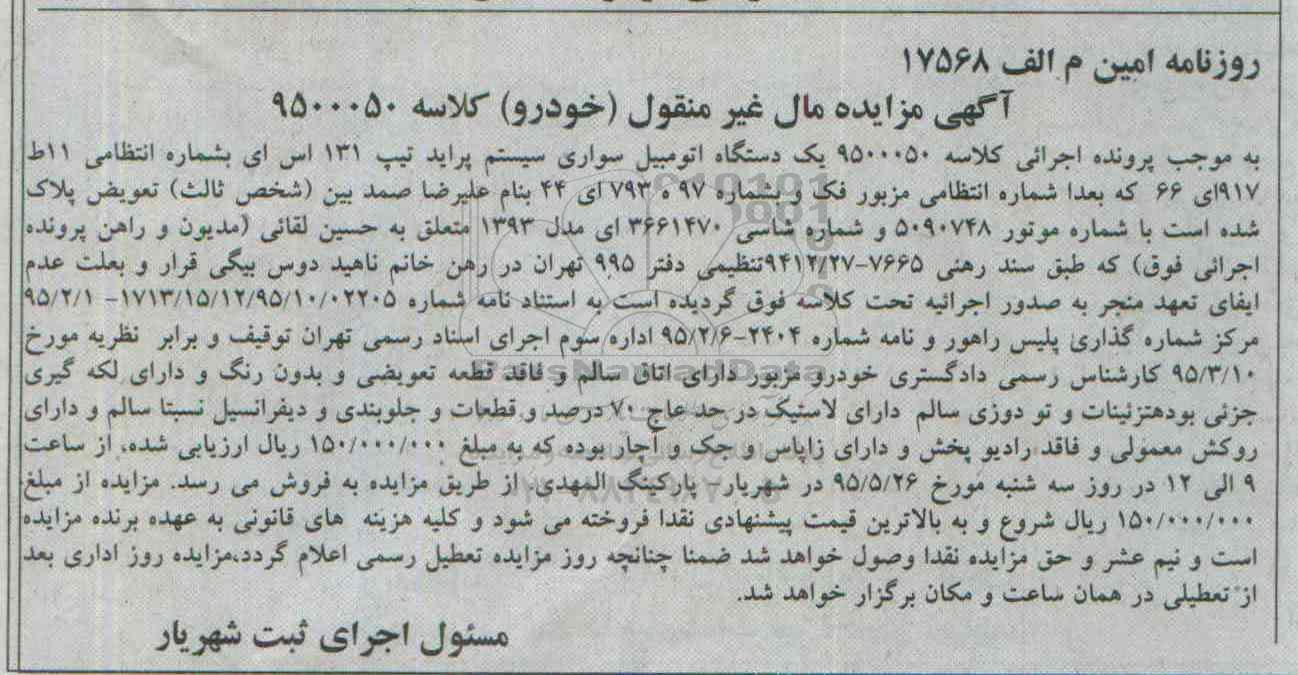 روزنامه امین م الف ۱۷۵۶۸
آگهی مزایده مال غیر منقول (خودرو) کلاسه ۹۵۰۰۰۵۰
به موجب پرونده اجرائی کلاسه ۹۵۰۰۰۵۰ یک دستگاه اتومبیل سواری سیستم پراید تیپ ۱۳۱ اس ای بشماره انتظامی ۱۱ط
۹۱۷ای ۶۶ که بعدا شماره انتظامی مزبور فک و بشماره ۹۷ ه ۷۹۳ ای ۴۴ بنام علیرضا صمد بین (شخص ثالث) تعویض پلاک
شده است با شماره موتور ۵۰۹۰۷۴۸ و شماره شاسی ۳۶۶۱۴۷۰ ای مدل ۱۳۹۳ متعلق به حسین لقائی (مدیون و راهن پرونده
اجرائی فوق) که طبق سند رهنی ۷۶۶۵-۹۴۱۲/۲۷تنظیمی دفتر ۹۹۵ تهران در رهن خانم ناهید دوس بیگی قرار و بعلت عدم
ایفای تعهد منجر به صدور اجرائیه تحت کلاسه فوق گردیده است به استناد نامه شماره ۱۷۱۳/۱۵/۱۲/۹۵/۱۰/۰۲۲۰۵- ۹۵/۲/۱
مرکز شماره گذاری پلیس راهور و نامه شماره ۲۴۰۴-۹۵/۲/۶ اداره سوم اجرای اسناد رسمی تهران توقیف و برابر نظریه مورخ
۹۵/۳/۱۰ کارشناس رسمی دادگستری خودرو مزبور دارای اتاق سالم و فاقد قطعه تعویضی و بدون رنگ و دارای لکه گیری
جزئی بودهتزئینات و تو دوزی سالم دارای لاستیک در حد عاج ۷۰ درصد و قطعات و جلوبندی و دیفرانسیل نسبتا سالم و دارای
روکش معمولی و فاقد رادیو پخش و دارای زاپاس و جک و آچار بوده که به مبلغ ۱۵۰/۰۰۰/۰۰۰ ریال ارزیابی شده، از ساعت
۹ الی ۱۲ در روز سه شنبه مورخ ۹۵/۵/۲۶ در شهریار پارکینگ المهدی از طریق مزایده به فروش می رسد. مزایده از مبلغ
۱۵۰/۰۰۰/۰۰۰ ریال شروع و به بالاترین قیمت پیشنهادی نقدا فروخته می شود و کلیه هزینه های قانونی به عهده برنده مزایده
است و نیم عشر و حق مزایده نقدا وصول خواهد شد ضمنا چنانچه روز مزایده تعطیل رسمی اعلام گردد،مزایده روز اداری بعد
از تعطیلی در همان ساعت و مکان برگزار خواهد شد.
مسئول اجرای ثبت شهریار
ParsNamadData